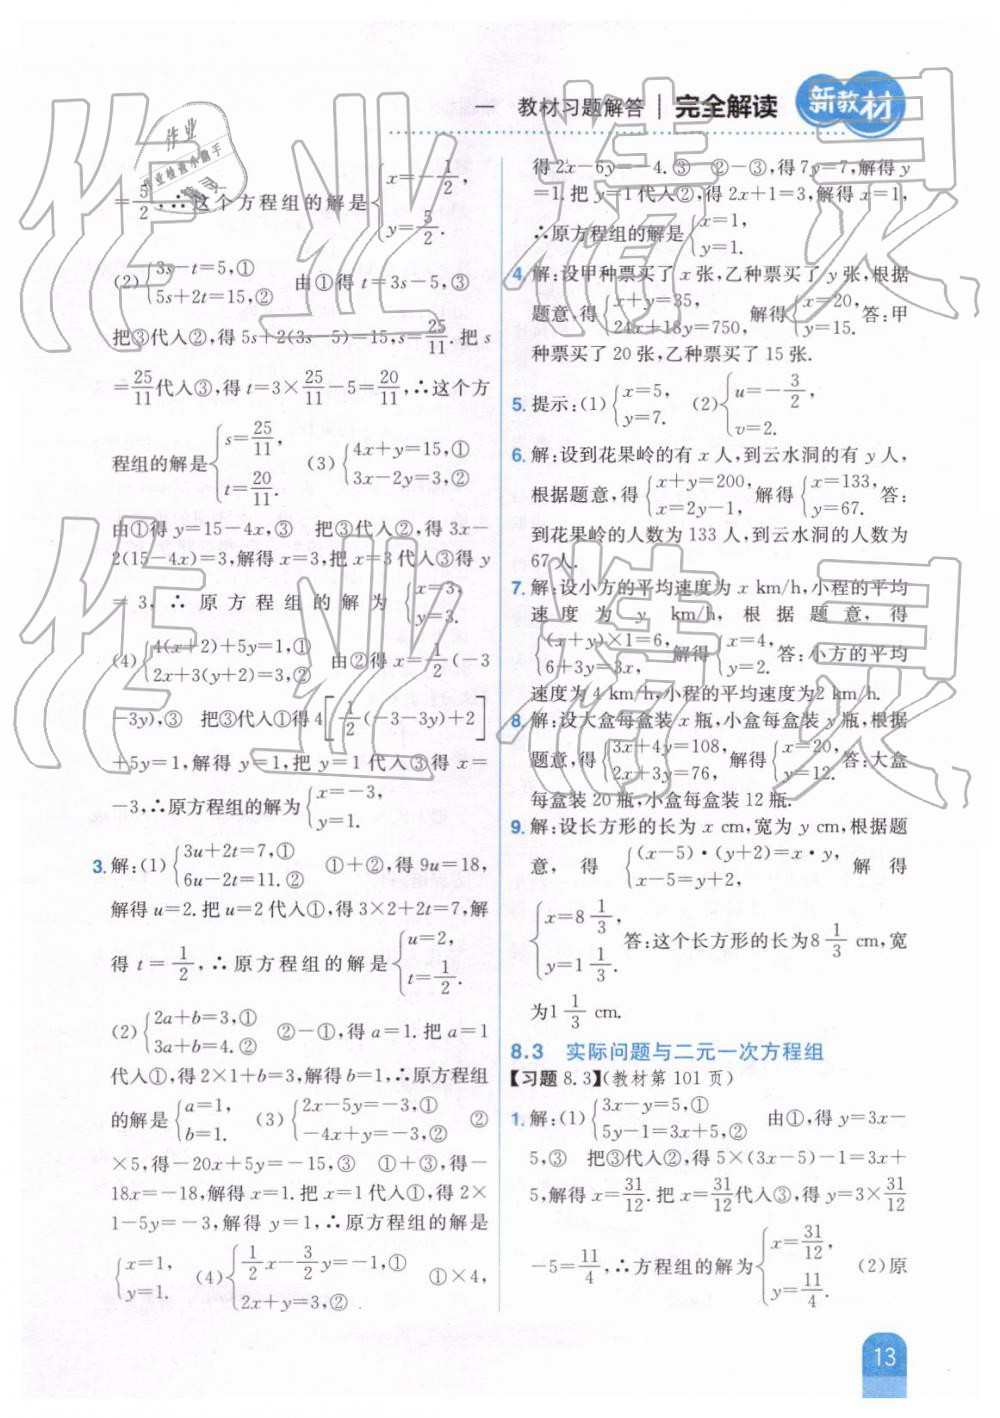 一 教材习题解答 | 完全解读 新教材
=5/2,∴这个方程组的解是{x=-1/2, y=5/2.
(2){3s-t=5,① 5s+2t=15,② 由①得 t=3s-5,③
把③代入②,得 5s+2(3s-5)=15,s=25/11.把 s
=25/11代入③,得 t=3×25/11-5=20/11,∴这个方
程组的解是{s=25/11, t=20/11. (3){4x+y=15,① 3x-2y=3,②
由①得 y=15-4x,③ 把③代入②,得 3x-
2(15-4x)=3,解得 x=3,把 x=3 代入③得 y
=3,∴原方程组的解为{x=3, y=3.
(4){4(x+2)+5y=1,① 2x+3(y+2)=3,② 由②得 x=1/2(-3
-3y),③ 把③代入①得 4[1/2(-3-3y)+2]
+5y=1,解得 y=1,把 y=1 代入③得 x=
-3,∴原方程组的解为{x=-3, y=1.
3.解:(1){3u+2t=7,① 6u-2t=11.② ①+②,得 9u=18,
解得 u=2.把 u=2 代入①,得 3×2+2t=7,解
得 t=1/2,∴原方程组的解是{u=2, t=1/2.
(2){2a+b=3,① 3a+b=4.② ②-①,得 a=1.把 a=1
代入①,得 2×1+b=3,解得 b=1,∴原方程组
的解是{a=1, b=1. (3){2x-5y=-3,① -4x+y=-3,② ②
×5,得-20x+5y=-15,③ ①+③,得-
18x=-18,解得 x=1.把 x=1 代入①,得 2×
1-5y=-3,解得 y=1,∴原方程组的解是
{x=1, y=1. (4){1/2x-3/2y=-1,① 2x+y=3,② ①×4,
得 2x-6y=-4.③ ②-③,得 7y=7,解得 y
=1.把 y=1 代入②,得 2x+1=3,解得 x=1,
∴原方程组的解是{x=1, y=1.
4.解:设甲种票买了 x 张,乙种票买了 y 张,根据
题意,得{x+y=35, 24x+18y=750, 解得{x=20, y=15. 答:甲
种票买了 20 张,乙种票买了 15 张.
5.提示:(1){x=5, y=7. (2){u=-3/2, v=2.
6.解:设到花果岭的有 x 人,到云水洞的有 y 人,
根据题意,得{x+y=200, x=2y-1, 解得{x=133, y=67. 答:
到花果岭的人数为 133 人,到云水洞的人数为
67 人.
7.解:设小方的平均速度为 x km/h,小程的平均
速度为 y km/h,根据题意,得
{(x+y)×1=6, 6+3y=3x, 解得{x=4, y=2. 答:小方的平均
速度为 4 km/h,小程的平均速度为2 km/h.
8.解:设大盒每盒装 x 瓶,小盒每盒装 y 瓶,根据
题意,得{3x+4y=108, 2x+3y=76, 解得{x=20, y=12. 答:大盒
每盒装 20 瓶,小盒每盒装 12 瓶.
9.解:设长方形的长为 x cm,宽为 y cm,根据题
意,得{(x-5)·(y+2)=x·y, x-5=y+2, 解得
{x=8 1/3, y=1 1/3. 答:这个长方形的长为8 1/3 cm,宽
为1 1/3 cm.
8.3 实际问题与二元一次方程组
【习题 8.3】(教材第 101 页)
1.解:(1){3x-y=5,① 5y-1=3x+5,② 由①,得 y=3x-
5,③ 把③代入②,得 5×(3x-5)-1=3x+
5,解得 x=31/12.把 x=31/12代入③,得 y=3×31/12
-5=11/4,∴方程组的解为{x=31/12, y=11/4. (2)原
13
作业精灵